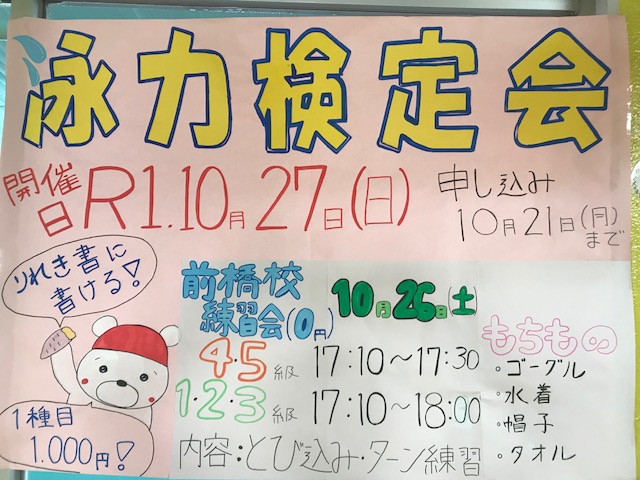 泳力検定会
開催日 R1.10月27日(日)
申し込み
10月21日(月)まで
りれき書に
書ける!
1種目
1.000円!
前橋校
練習会(0円)
10月26日(土)
4・5級 17:10～17:30
1・2・3級 17:10～18:00
内容:とび込み・ターン練習
もちもの
・ゴーグル
・水着
・帽子
・タオル